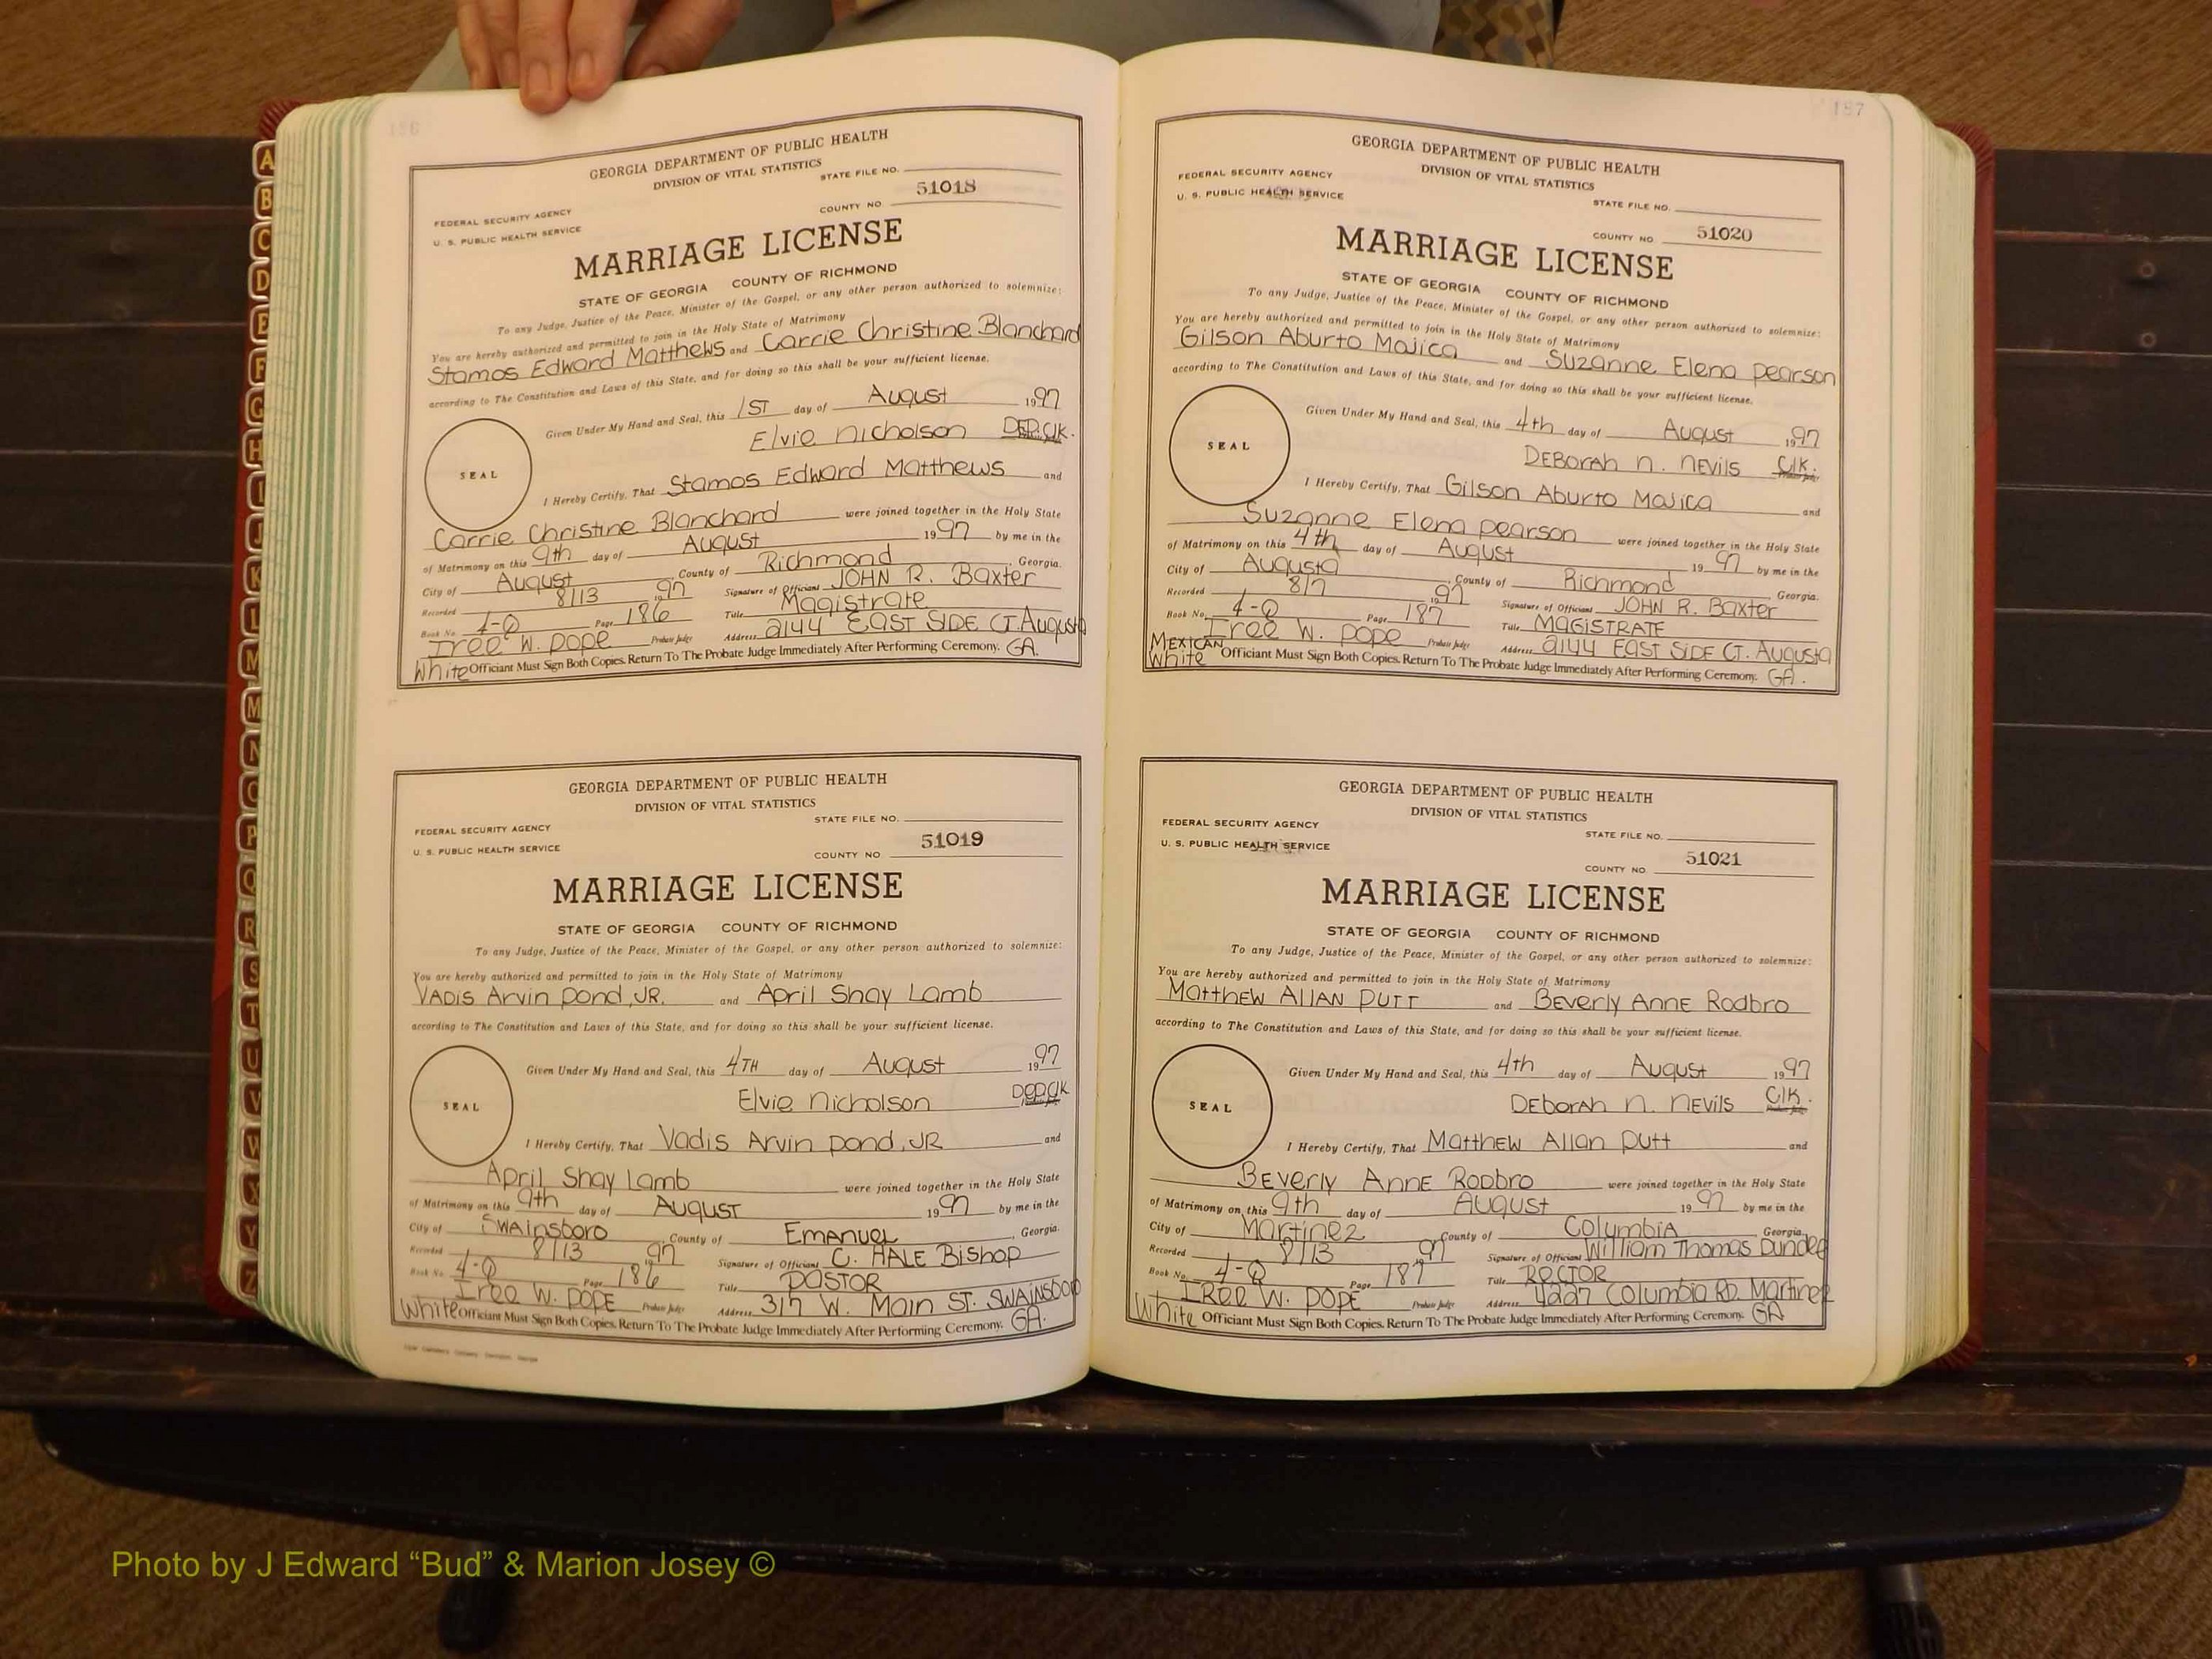 186
GEORGIA DEPARTMENT OF PUBLIC HEALTH
DIVISION OF VITAL STATISTICS
STATE FILE NO.
FEDERAL SECURITY AGENCY
U. S. PUBLIC HEALTH SERVICE
COUNTY NO. 51018
MARRIAGE LICENSE
STATE OF GEORGIA COUNTY OF RICHMOND
To any Judge, Justice of the Peace, Minister of the Gospel, or any other person authorized to solemnize:
You are hereby authorized and permitted to join in the Holy State of Matrimony
Stamos Edward Matthews and Carrie Christine Blanchard
according to The Constitution and Laws of this State, and for doing so this shall be your sufficient license.
Given Under My Hand and Seal, this 1ST day of August 1997
Elvie Nicholson DEP.Clk.
SEAL
I Hereby Certify, That Stamos Edward Matthews and
Carrie Christine Blanchard were joined together in the Holy State
of Matrimony on this 9th day of August 1997 by me in the
City of August County of Richmond, Georgia.
Recorded 8/13 1997 Signature of Official JOHN R. Baxter
Book No. 4-Q Page 186 Title Magistrate
Iree W. Pope Probate Judge Address 2144 EAST SIDE CT. Augusta
White Officiant Must Sign Both Copies. Return To The Probate Judge Immediately After Performing Ceremony. GA.
GEORGIA DEPARTMENT OF PUBLIC HEALTH
DIVISION OF VITAL STATISTICS
STATE FILE NO.
FEDERAL SECURITY AGENCY
U. S. PUBLIC HEALTH SERVICE
COUNTY NO. 51019
MARRIAGE LICENSE
STATE OF GEORGIA COUNTY OF RICHMOND
To any Judge, Justice of the Peace, Minister of the Gospel, or any other person authorized to solemnize:
You are hereby authorized and permitted to join in the Holy State of Matrimony
VADIS Arvin Pond, JR. and April Shay Lamb
according to The Constitution and Laws of this State, and for doing so this shall be your sufficient license.
Given Under My Hand and Seal, this 4TH day of August 1997
Elvie Nicholson DEP.Clk
SEAL
I Hereby Certify, That Vadis Arvin Pond, JR and
April Shay Lamb were joined together in the Holy State
of Matrimony on this 9th day of AUGUST 1997 by me in the
City of SWAinsboro, County of EMANUEL, Georgia.
Recorded 8/13 1997 Signature of Official C. HALE Bishop
Book No. 4-Q Page 186 Title PASTOR
Iree W. POPE Probate Judge Address 317 W. Main ST. SWAINSboro
White Officiant Must Sign Both Copies. Return To The Probate Judge Immediately After Performing Ceremony. GA.
187
GEORGIA DEPARTMENT OF PUBLIC HEALTH
DIVISION OF VITAL STATISTICS
FEDERAL SECURITY AGENCY
U. S. PUBLIC HEALTH SERVICE
STATE FILE NO.
COUNTY NO 51020
MARRIAGE LICENSE
STATE OF GEORGIA COUNTY OF RICHMOND
To any Judge, Justice of the Peace, Minister of the Gospel, or any other person authorized to solemnize:
You are hereby authorized and permitted to join in the Holy State of Matrimony
Gilson Aburto Mojica and Suzanne Elena Pearson
according to The Constitution and Laws of this State, and for doing so this shall be your sufficient license.
Given Under My Hand and Seal, this 4th day of August 1997
DEBORAH N. NEVilS Clk.
SEAL
I Hereby Certify, That Gilson Aburto Mojica and
Suzanne Elena Pearson were joined together in the Holy State
of Matrimony on this 4th day of August 1997 by me in the
City of Augusta, County of Richmond Georgia.
Recorded 8/7 1997 Signature of Official JOHN R. Baxter
Book No. 4-Q Page 187 Title MAGISTRATE
Iree W. Pope Probate Judge Address 2144 EAST SIDE CT. Augusta
MEXICAN
White Officiant Must Sign Both Copies. Return To The Probate Judge Immediately After Performing Ceremony. GA.
GEORGIA DEPARTMENT OF PUBLIC HEALTH
DIVISION OF VITAL STATISTICS
FEDERAL SECURITY AGENCY
U. S. PUBLIC HEALTH SERVICE
STATE FILE NO.
COUNTY NO. 51021
MARRIAGE LICENSE
STATE OF GEORGIA COUNTY OF RICHMOND
To any Judge, Justice of the Peace, Minister of the Gospel, or any other person authorized to solemnize:
You are hereby authorized and permitted to join in the Holy State of Matrimony
MATTHEW AllAN PUTT and BEVErly ANNE Rodbro
according to The Constitution and Laws of this State, and for doing so this shall be your sufficient license.
Given Under My Hand and Seal, this 4th day of August 1997
DEborAH N. NEVils Clk.
SEAL
I Hereby Certify, That MatthEW Allan Putt and
BEVErly ANNE RODbro were joined together in the Holy State
of Matrimony on this 9th day of AUGUST 1997 by me in the
City of Martinez, County of Columbia Georgia.
Recorded 8/13 97 Signature of Official William Thomas Dundee
Book No. 4-Q Page 187 Title RECTOR
IREE W. POPE Probate Judge Address 4227 Columbia RD. Martinez
White Officiant Must Sign Both Copies. Return To The Probate Judge Immediately After Performing Ceremony. GA
A
B
C
D
E
F
G
H
I
J
K
L
M
M
N
O
P
Q
R
S
T
U
V
W
X
Y
Z
Photo by J Edward “Bud” & Marion Josey ©